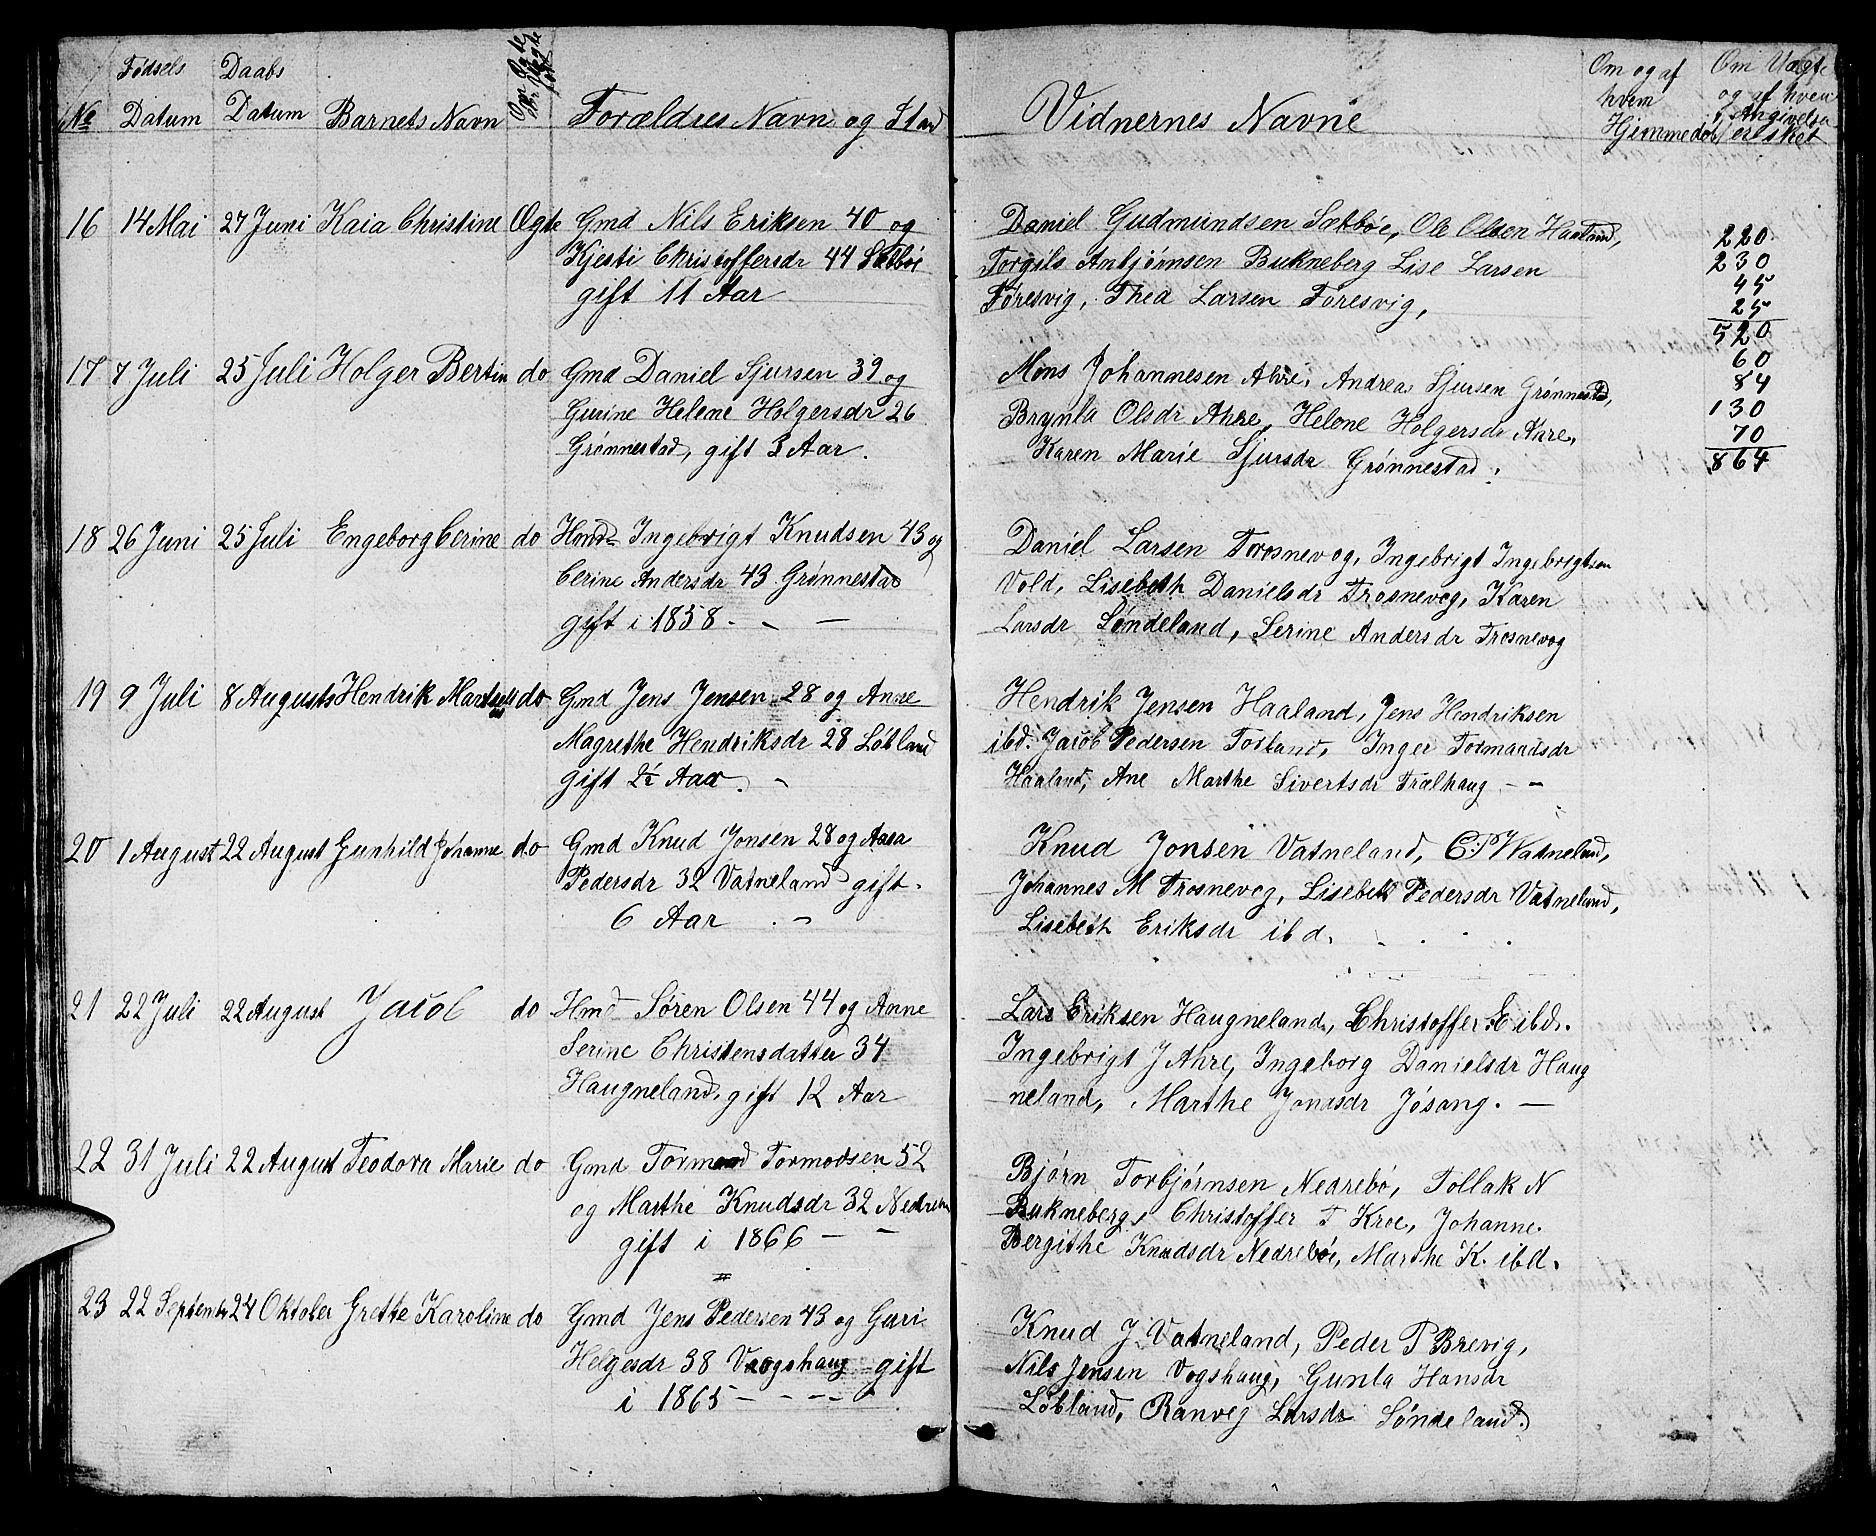 Fødsels Daabs
No Datum Datum Barnets Navn Forældres Navn og Stand
16 14 Mai 27 Juni Kaia Christine Ægte Gmd Nils Eriksen 40 og
Kjesti Christoffersdr 44 Sæbbøe
gift 11 Aar
17 7 Juli 25 Juli Holger Bertin do Gmd Daniel Sjursen 39 og
Gurine Helene Holgersdr 26
Grønnestad, gift 3 Aar.
18 26 Juni 25 Juli Engeborg Cerine do Hmd Ingebrigt Knudsen 43 og
Cerine Andersdr 43 Grønnestad
gift i 1858 - - -
19 9 Juli 8 Augusts Hendrik do Gmd Jens Jensen 28 og Anne
Magrethe Hendriksdr 28 Løbland
gift 2½ Aar. -
20 1 August 22 August Gunhild Johanne do Gmd Knud Jonsen 28 og Aasa
Pedersdr 32 Vatneland gift.
6 Aar . -
21 22 Juli 22 August Jacob do Hmd Søren Olsen 44 og Anne
Serine Christensdatter 34
Haugneland, gift 12 Aar
22 31 Juli 22 August Teodora Marie do Gmd Tormod Tormodsen 52
og Marthe Knudsdr 32 Nedrebø
gift i 1866 - -
23 22 Septembr 24 Oktober Grethe Karoline do Gmd Jens Pedersen 43 og Guri
Helgesdr 38 Vaagshaug gift
i 1865 - - - -
Vidnernes Navne
Om og af
hvem
Hjemmedøb
Om Vægt
og af hvem
Angivelse
er skeet
Daniel Gudmundsen Sæbbøe, Ole Olsen Haaland,
Torgils Anbjørnsen Bukneberg Lise Larsen
Føresvig, Thea Larsen Føresvig,
220
230
45
25
520
60
84
130
70
864
Mons Johannesen Ahre, Andreas Sjursen Grønnestad,
Brynla Olsdr Ahre, Helene Holgersdr Ahre,
Karen Marie Sjursdr Grønnestad.
Daniel Larsen Trosnevog, Ingebrigt Ingebrigtsen
Vold, Lisebeth Danielsdr Trosnevog, Karen
Larsdr Søndeland, Serine Andersdr Trosnevog
Hendrik Jensen Haaland, Jens Hendriksen
ibd. Jacob Pedersen Torland, Inger Tormaadsdr
Haaland, Ane Marthe Sivertsdr Trælhaug - -
Knud Jonsen Vatneland, C. P Watneland,
Johannes M Trosnevog, Lisebeth Pedersdr Vatneland,
Lisebeth Eriksdr ibd.
Lars Eriksen Haugneland, Christoffer E ibd.
Ingebrigt J Ahre, Ingeborg Danielsdr Haug
neland, Marthe Jonasdr Jøsang. -
Bjørn Torbjørnsen Nedrebø, Tollak N
Bukneberg, Christoffer T Kroe, Johanne
Bergithe Knudsdr Nedrebøe, Marthe K. ibd.
Knud J Vatneland, Peder P Brevig,
Nils Jensen Vogshaug, Gunla Hansdr
Løbland, Ranveg Larsdr Søndeland.